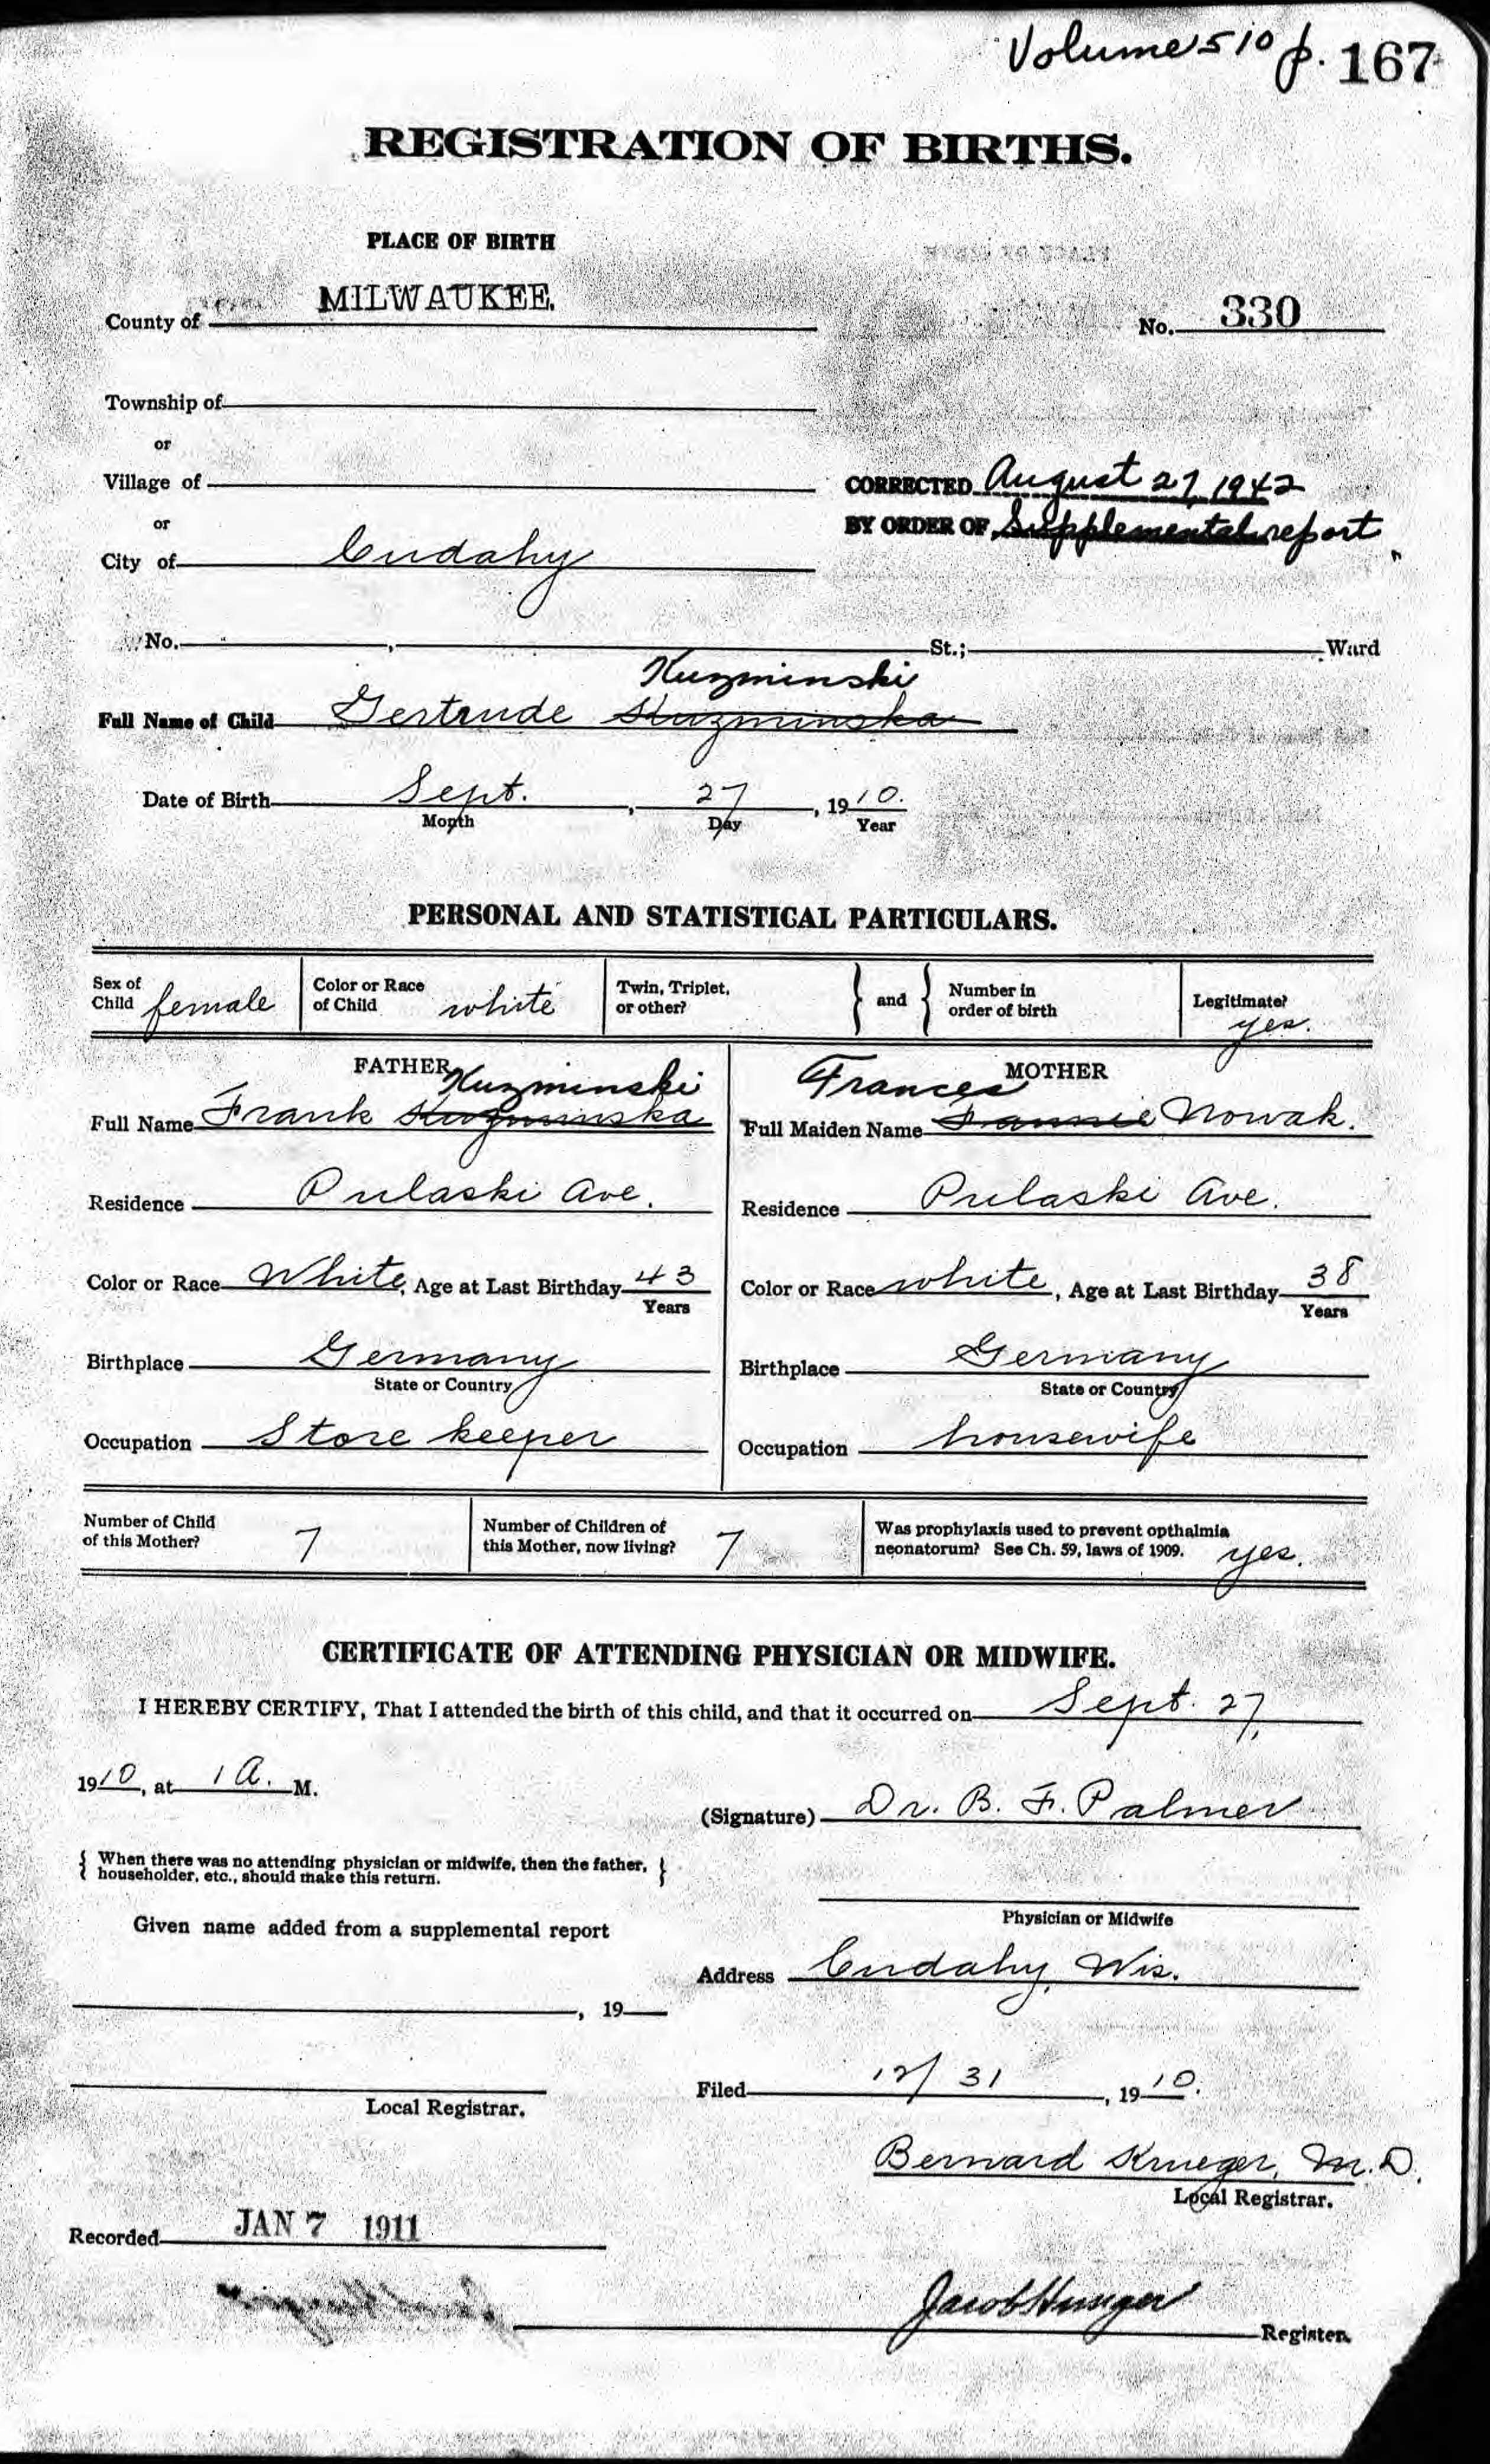 Volume 510 p. 167
REGISTRATION OF BIRTHS.
PLACE OF BIRTH
County of MILWAUKEE.
No. 330
Township of
or
Village of
CORRECTED August 27, 1942
or
BY ORDER OF Supplemental report
City of Cudahy
No. , St.; Ward
Kuzminski
Full Name of Child Gertrude Kuzminska
Date of Birth Sept. , 27 , 1910.
Month Day Year
PERSONAL AND STATISTICAL PARTICULARS.
Sex of Child female Color or Race of Child white Twin, Triplet, or other? and Number in order of birth Legitimate? yes.
FATHER MOTHER
Kuzminski Frances
Full Name Frank Kuzminska Full Maiden Name Fannie Nowak.
Residence Pulaski Ave. Residence Pulaski Ave.
Color or Race White, Age at Last Birthday 43 Color or Race white, Age at Last Birthday 38
Years Years
Birthplace Germany Birthplace Germany
State or Country State or Country
Occupation Store keeper Occupation housewife
Number of Child of this Mother? 7 Number of Children of this Mother, now living? 7 Was prophylaxis used to prevent opthalmia neonatorum? See Ch. 59, laws of 1909. yes.
CERTIFICATE OF ATTENDING PHYSICIAN OR MIDWIFE.
I HEREBY CERTIFY, That I attended the birth of this child, and that it occurred on Sept. 27,
1910, at 1 A. M.
(Signature) Dr. B. F. Palmer
{ When there was no attending physician or midwife, then the father, householder, etc., should make this return. }
Physician or Midwife
Given name added from a supplemental report
Address Cudahy, Wis.
, 19
Filed 12/31 , 1910.
Local Registrar.
Bernard Krueger, M.D.
Local Registrar.
Recorded JAN 7 1911
Jacob
Register.